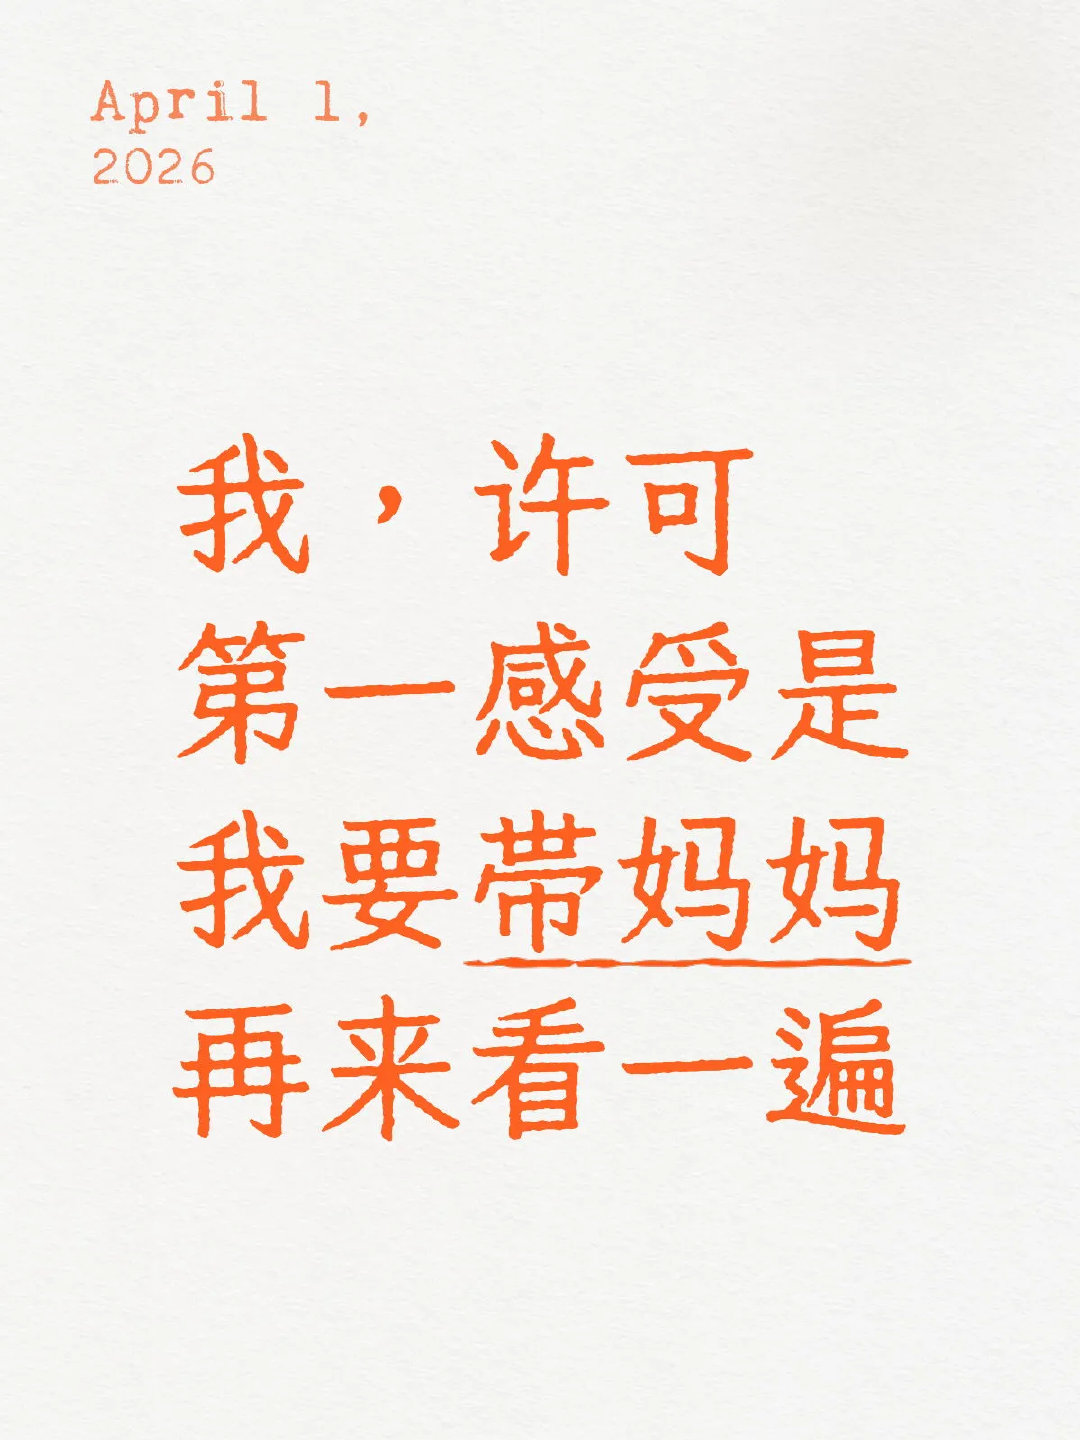 April 1,
2026
我，许可
第一感受是
我要带妈妈
再来看一遍